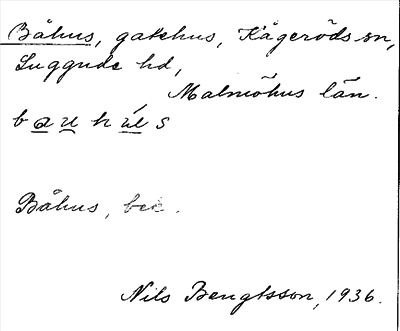 Båhus, gatehus, Kågeröds sn,
Luggude hd,
Malmöhus län.
b a u h ú s
Båhus, bek.
Nils Bengtsson, 1936.